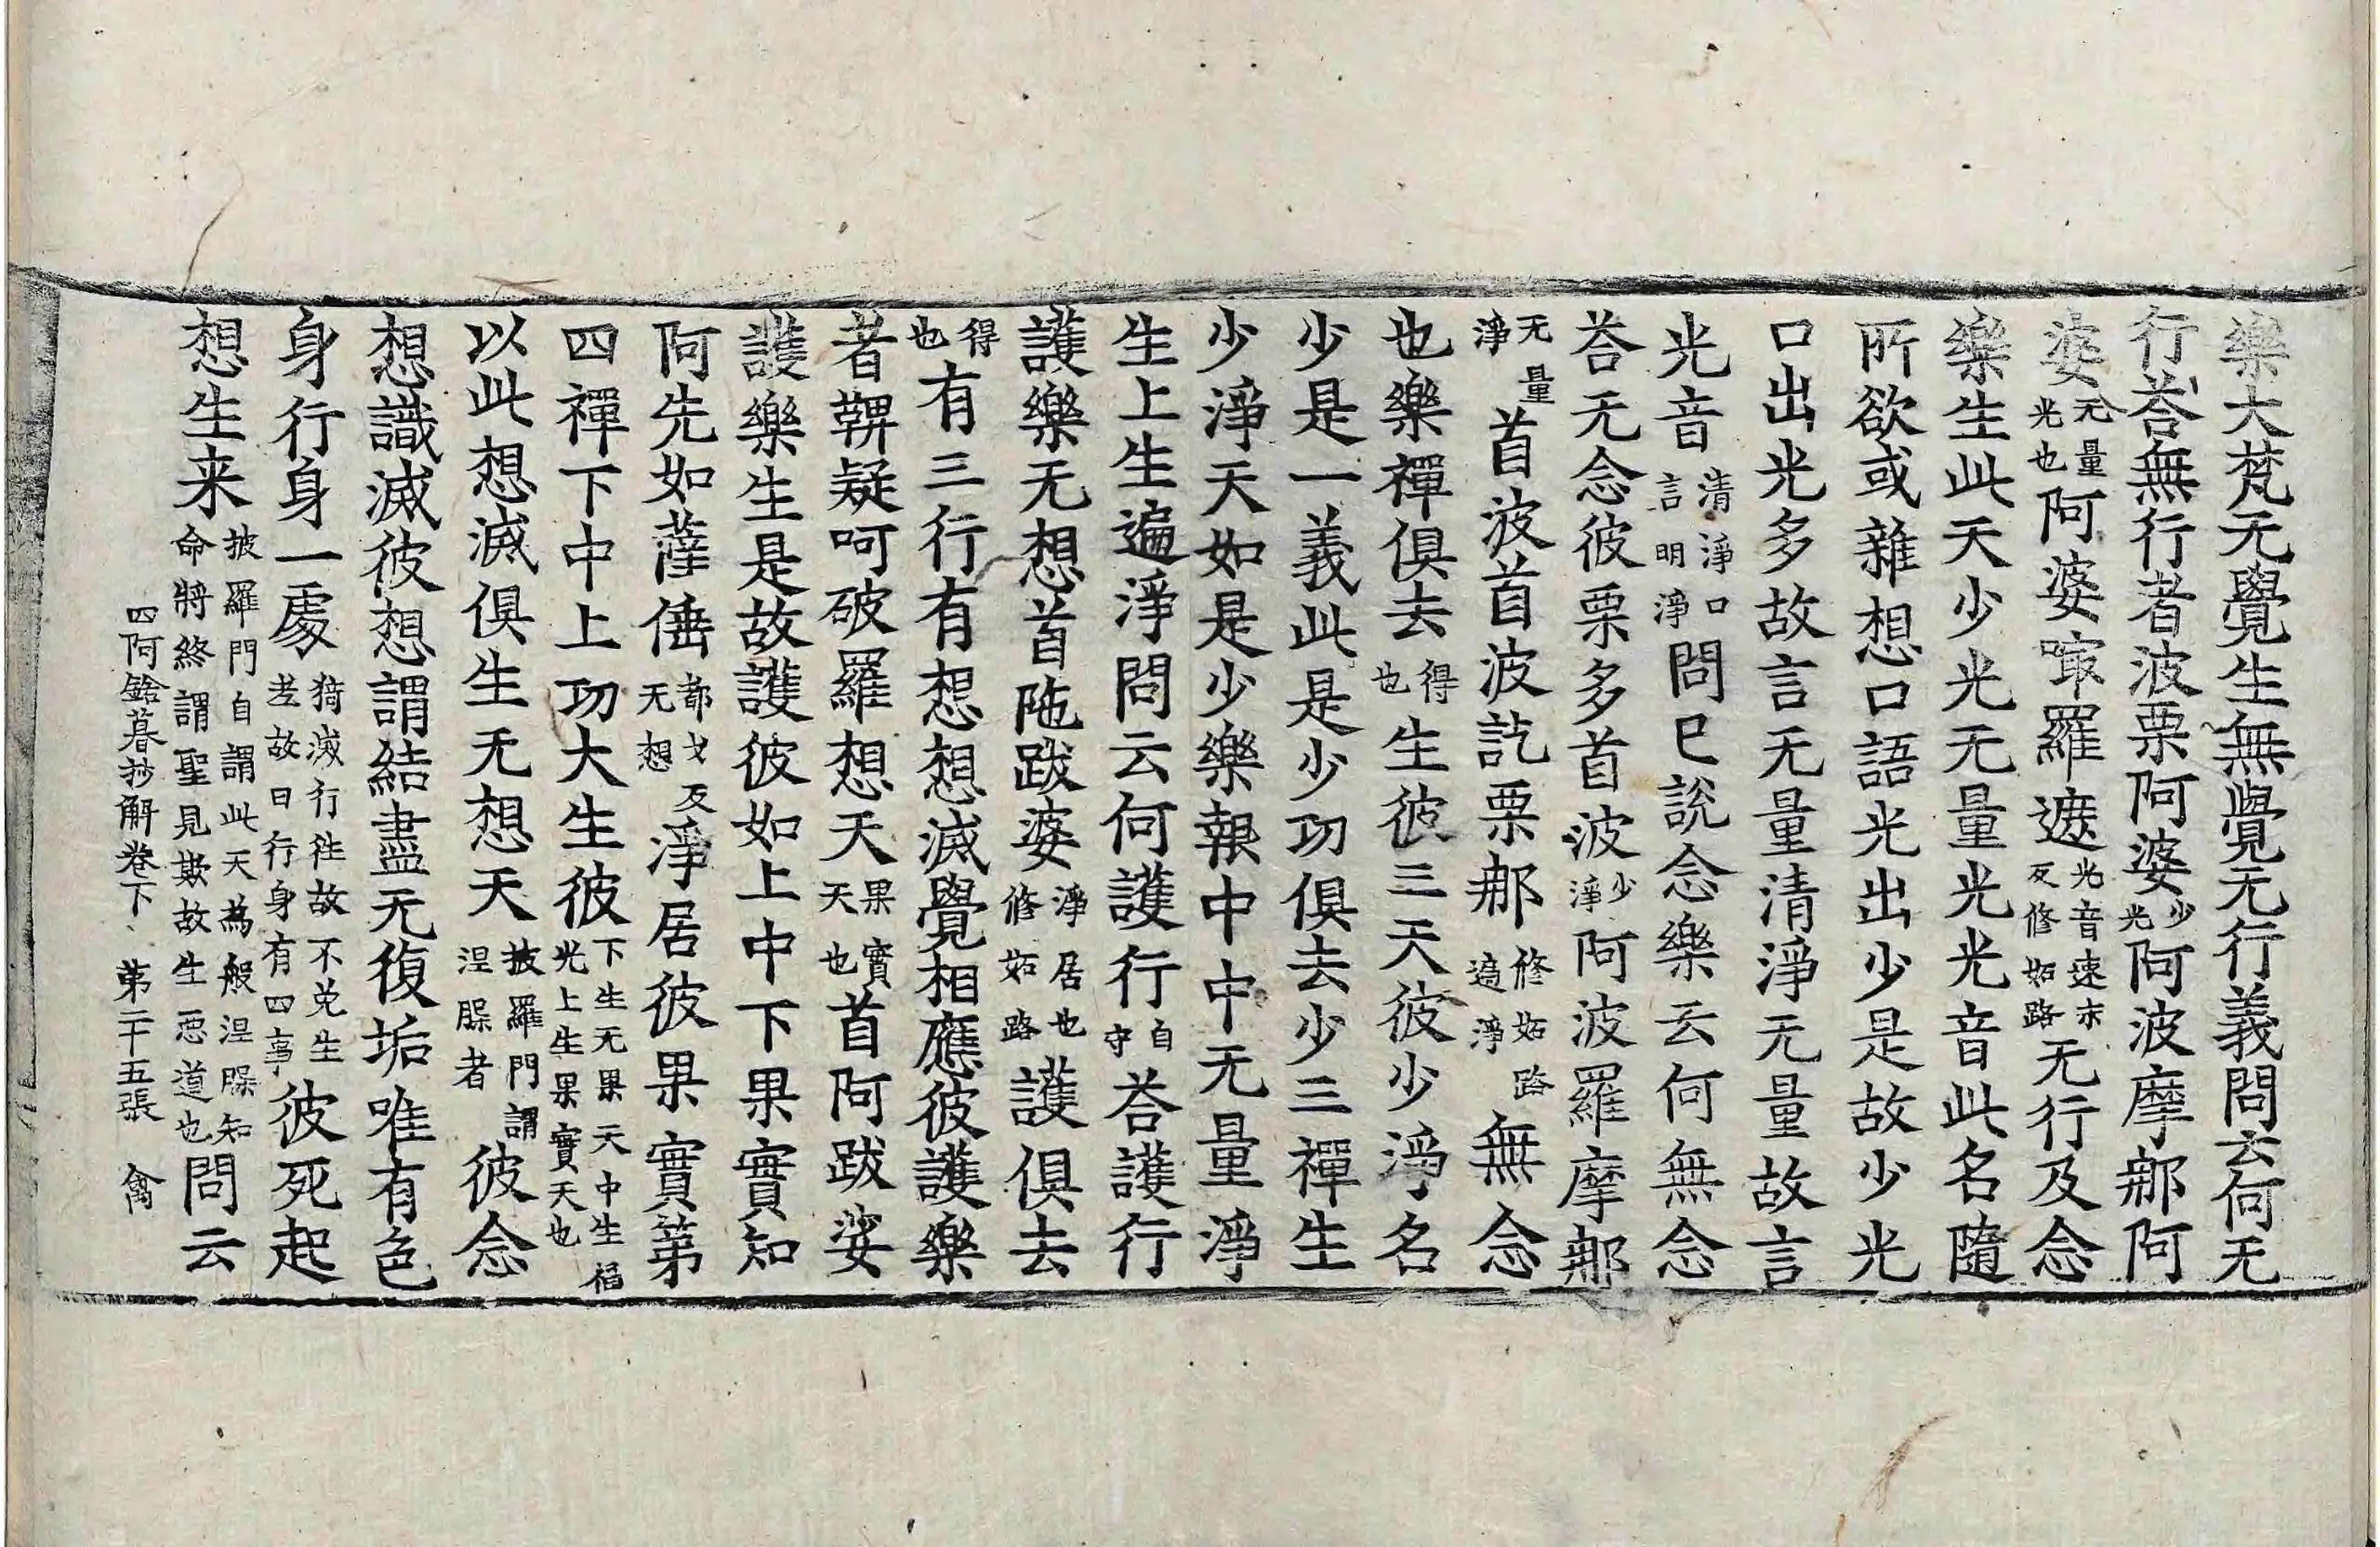 樂大梵无覺生無覺无行義問云何无
行荅無行者波栗阿婆少光阿波摩那阿
婆无量光也阿婆㗚羅遮光音速亦反修妬路无行及念
樂生此天少光无量光光音此名隨
所欲或雜想口語光出少是故少光
口出光多故言无量清淨无量故言
光音清淨口言明淨問已說念樂云何無念
荅无念彼栗多首波少淨阿波羅摩那
无量淨首波首波訖栗那修妬路遍淨無念
也樂禪俱去得也生彼三天彼少淨名
少是一義此是少功俱去少三禪生
少淨天如是少樂報中中无量淨
生上生遍淨問云何護行自守荅護行
護樂无想首陁跋婆淨居也修妬路護俱去
得也有三行有想想滅覺相應彼護樂
者鞞疑呵破羅想天果實天也首阿跋婆
護樂生是故護彼如上中下果實知
阿先如薩𠌥都戈反无想淨居彼果實第
四禪下中上功大生彼下生无果天中生福光上生果實天也
以此想滅俱生无想天披羅門謂涅槃者彼念
想識滅彼想謂結盡无復垢唯有色
身行身一處猗滅行往故不免生老故曰行身有四事彼死起
想生来披羅門自謂此天為般涅槃知命將終謂聖見欺故生惡道也問云
四阿鋡暮抄解卷下 第二十五張 禽